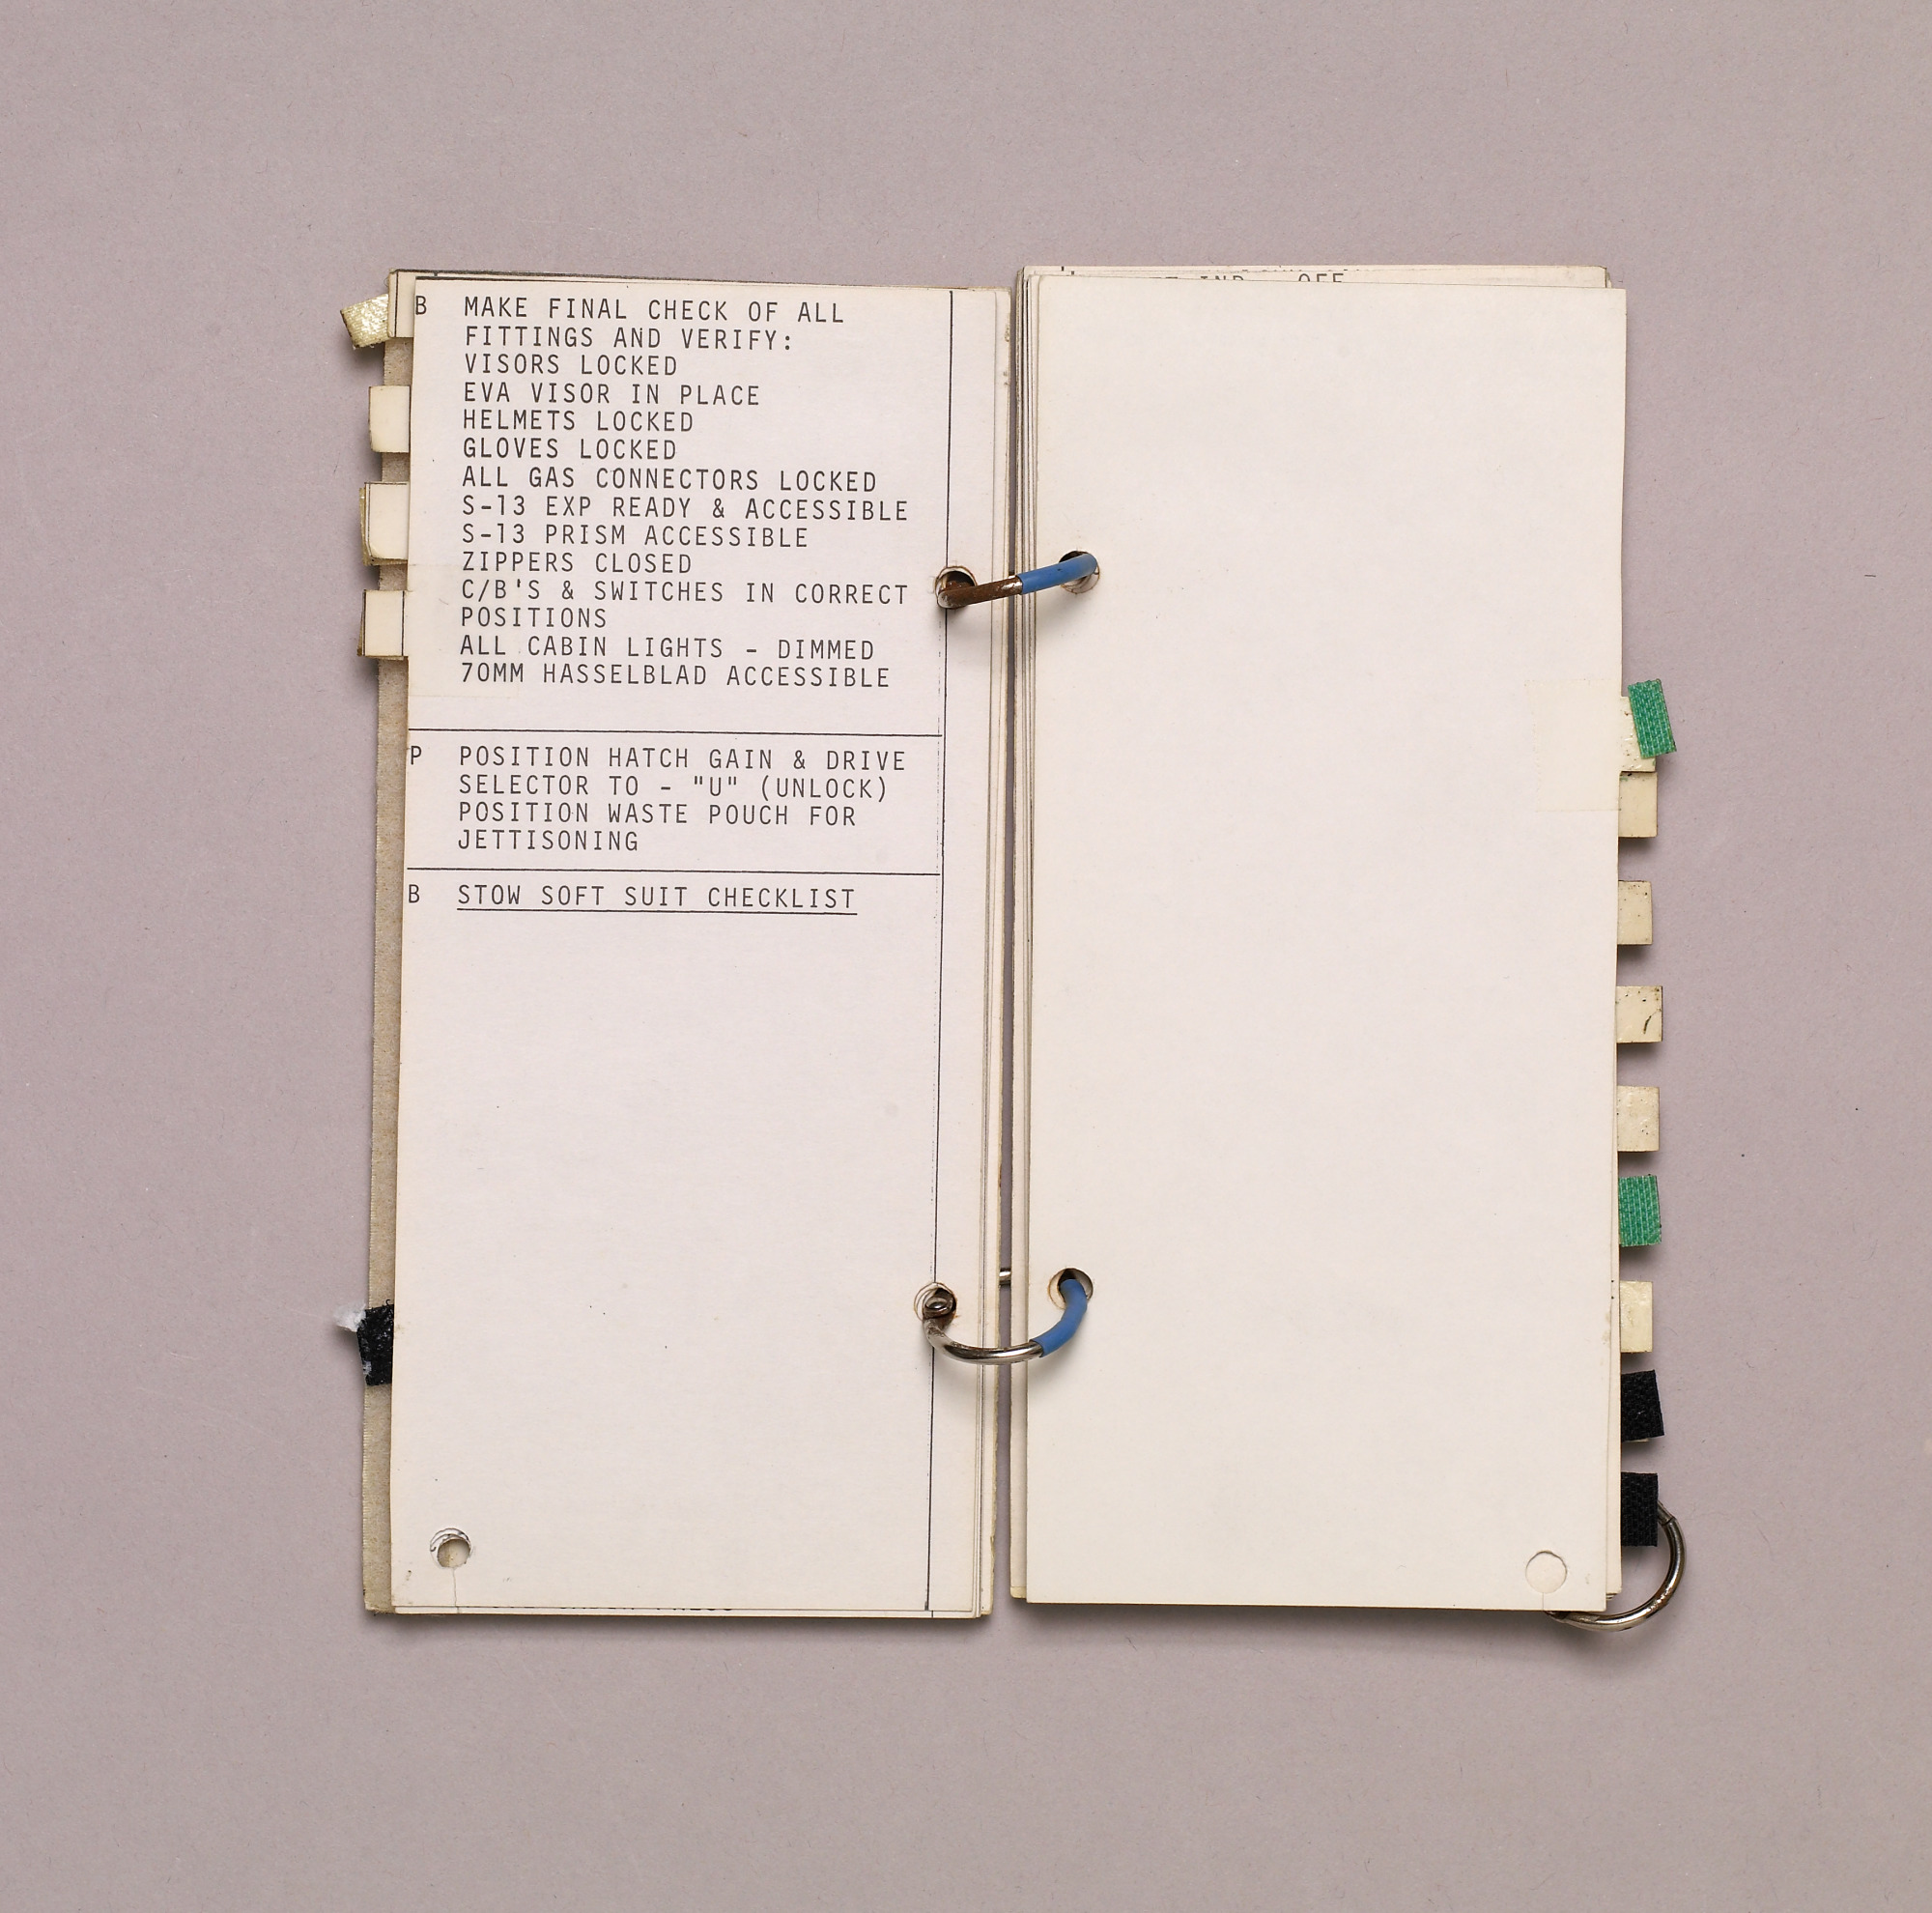 B MAKE FINAL CHECK OF ALL
FITTINGS AND VERIFY:
VISORS LOCKED
EVA VISOR IN PLACE
HELMETS LOCKED
GLOVES LOCKED
ALL GAS CONNECTORS LOCKED
S-13 EXP READY & ACCESSIBLE
S-13 PRISM ACCESSIBLE
ZIPPERS CLOSED
C/B'S & SWITCHES IN CORRECT
POSITIONS
ALL CABIN LIGHTS - DIMMED
70MM HASSELBLAD ACCESSIBLE
P POSITION HATCH GAIN & DRIVE
SELECTOR TO - "U" (UNLOCK)
POSITION WASTE POUCH FOR
JETTISONING
B STOW SOFT SUIT CHECKLIST
OFF